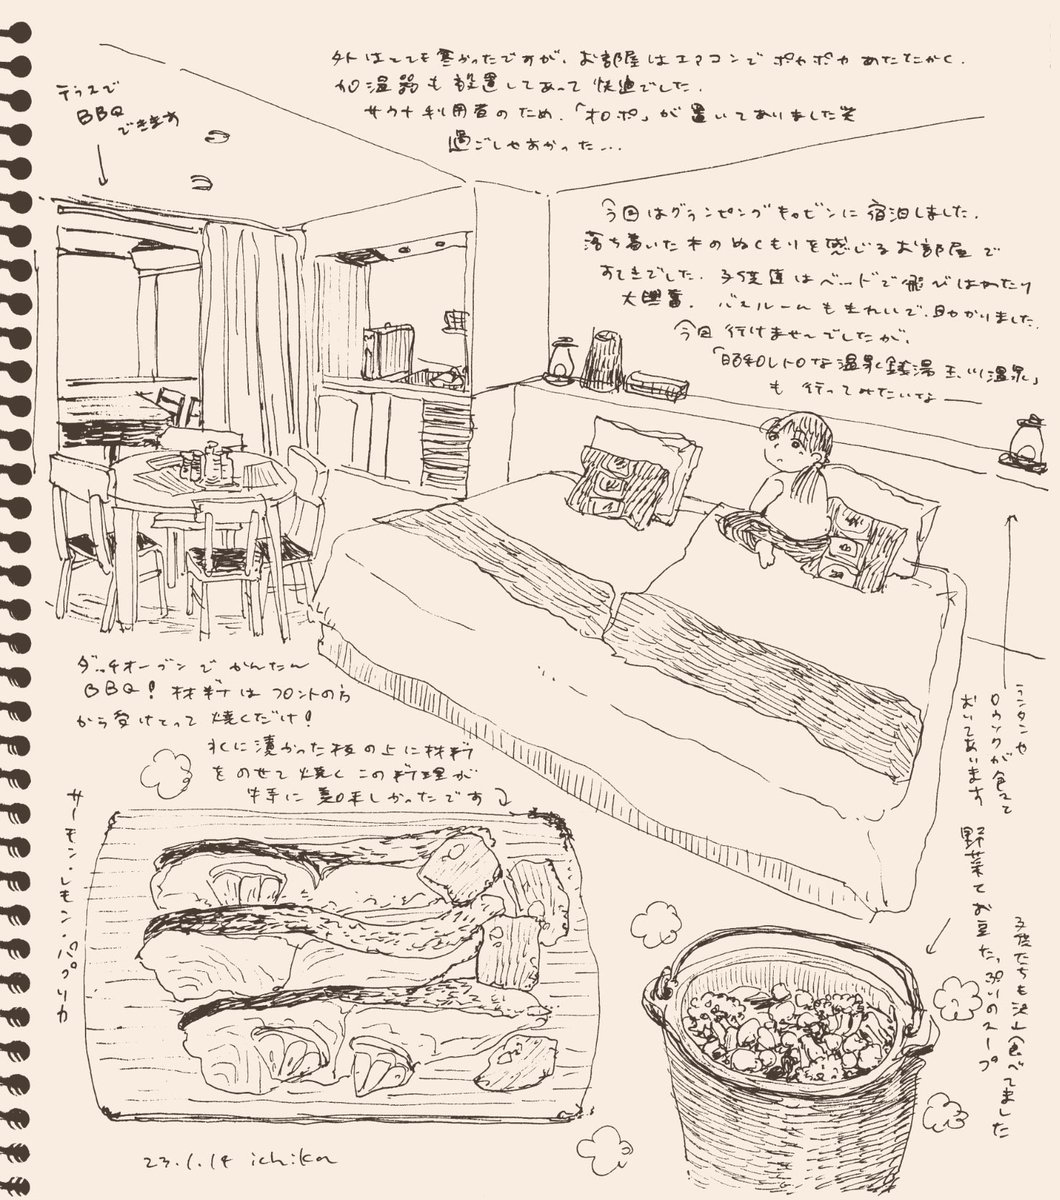 外はとても寒かったですが、お部屋はエアコンでポカポカあたたかく、
加湿器も設置してあって快適でした。
サウナ利用者のため、「オロポ」が置いてありました笑
過ごしやすかった…
テラスで
BBQ
できます
今回はグランピングキャビンに宿泊しました。
落ち着いた木のぬくもりを感じるお部屋で
すてきでした。子供達はベッドで飛びはねたり
大興奮。バスルームもきれいで、助かりました。
今回行けませんでしたが、
「昭和レトロな温泉銭湯 玉川温泉」
も行ってみたいなー
ダッチオーブンでかんたん
BBQ!材料はフロントの方
から受けとって焼くだけ!
水に浸かった板の上に材料
をのせて焼くこの料理が
特に美味しかったです
サーモン・レモン・パプリカ
ランタンや
ロウソクが
おいてあります
野菜とお豆たっぷりのスープ
子供たちも沢山食べてました
23.1.14 ichika